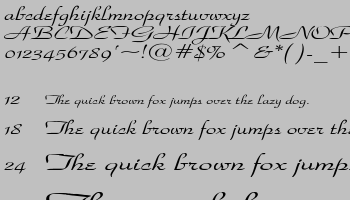 abcdefghijklmnopqrstuvwxyz
ABCDEFGHIJKLMNOP
0123456789'~!@#$%^&*()-_+
12 The quick brown fox jumps over the lazy dog.
18 The quick brown fox jumps over the
24 The quick brown fox jump